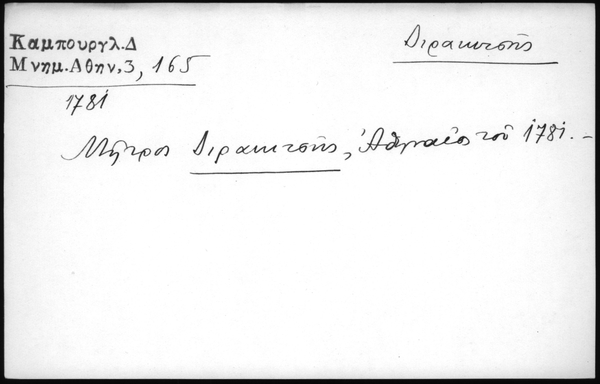 Καμπουργλ.Δ
Διρακιτσῆς
Μνημ.Αθην,3, 165
1781
Μῆτρος Διρακιτσῆς, Ἀθηναῖος τοῦ 1781.–